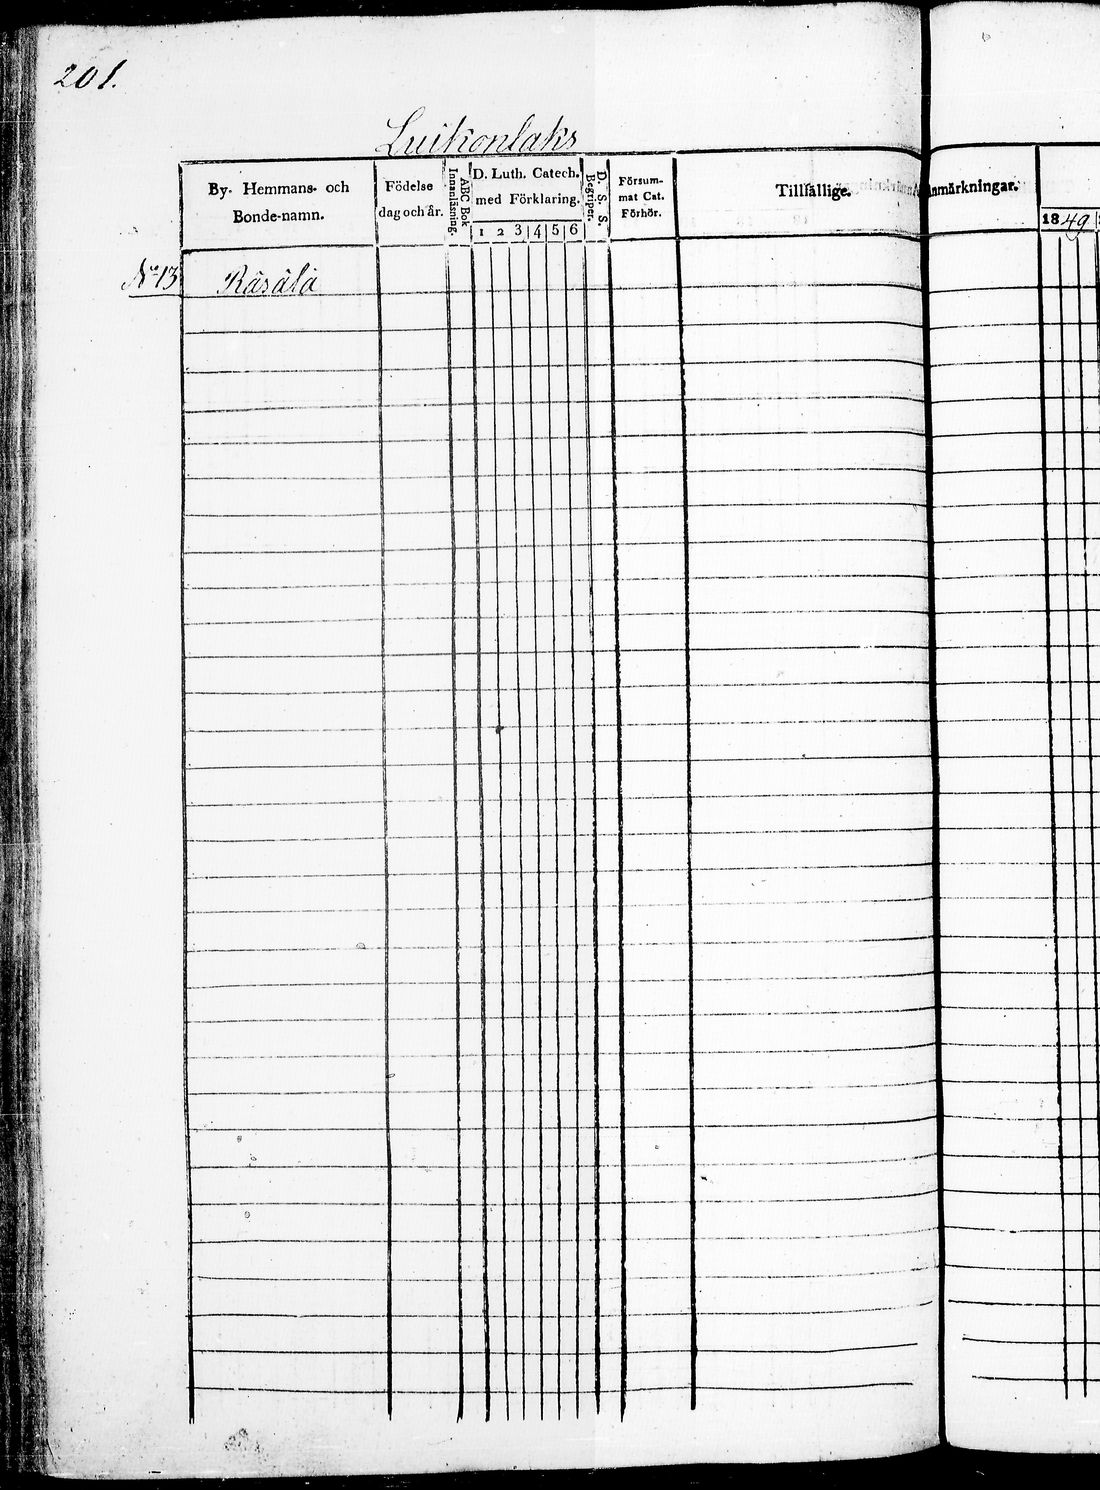 201.
Luikonlaks
By- Hemmans- och
Bonde-namn.
Födelse
dag och år.
ABC Bok
Innanläsning.
D. Luth. Catech.
med Förklaring.
1 2 3 4 5 6
D. S. S.
Begriper.
Försum-
mat Cat.
Förhör.
Tillfällige Anmärkningar.
1849
No 13 Räsälä